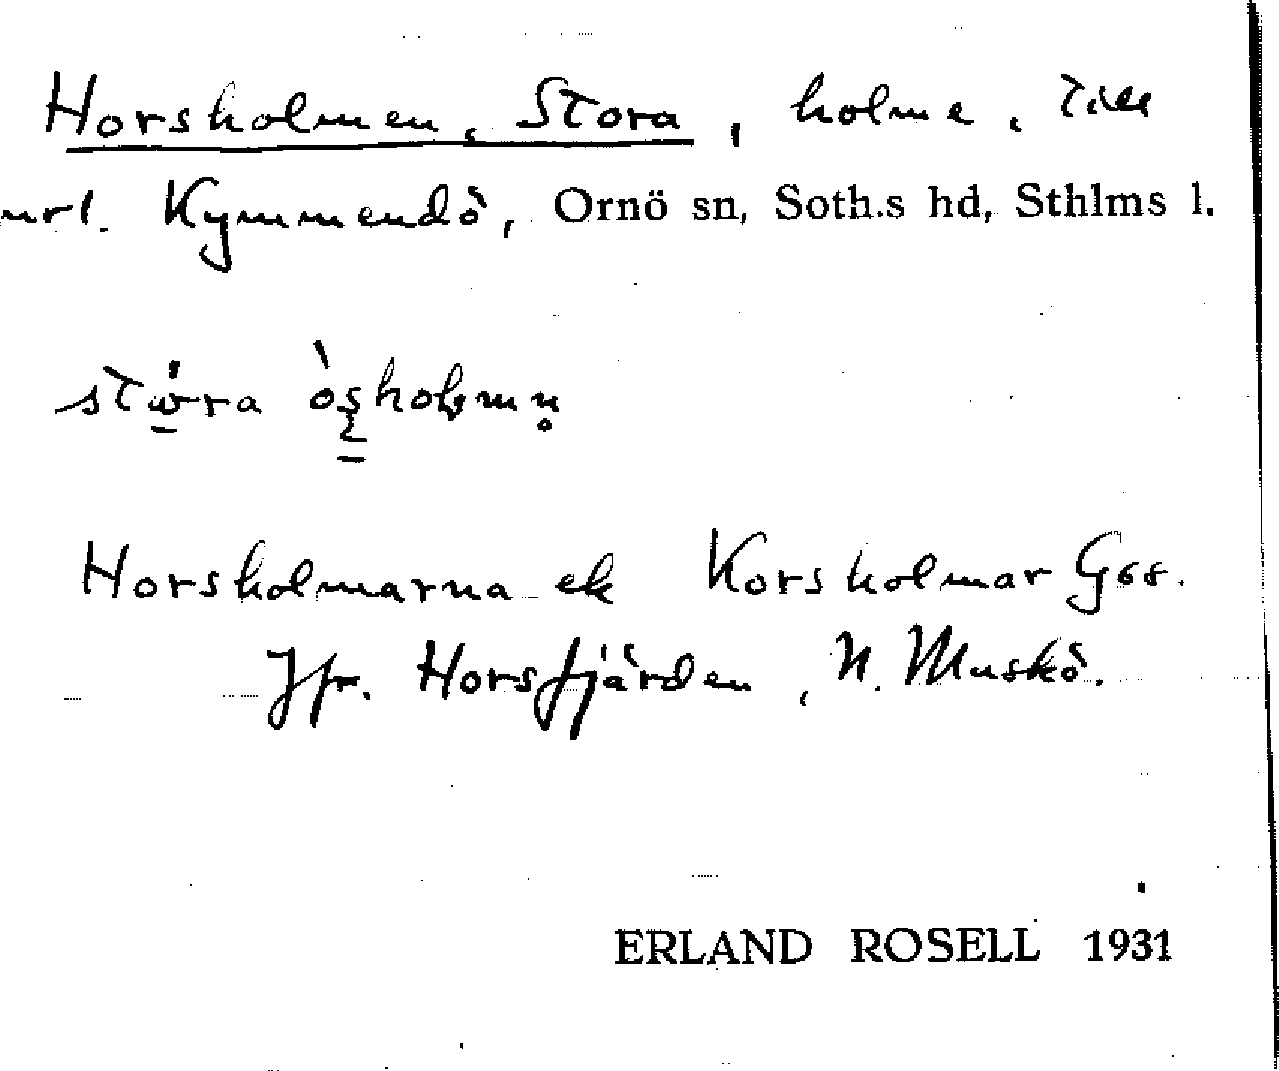 Horsholmen, Stora, holme, till
url. Kymmendö, Ornö sn, Soth.s hd, Sthlms l.
Horsholmarna ek Korsholmar Gss.
Jfr. Horsfjärden, N. Muskö.
ERLAND ROSELL 1931